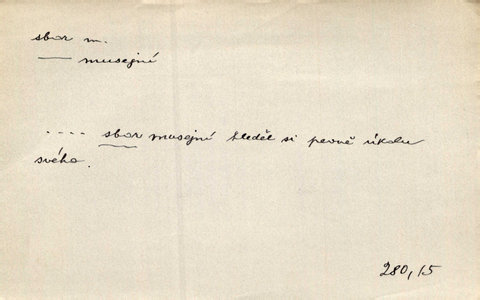 sbor m.
—— musejní
.... sbor musejní hleděl si pevně úkolu
svého.
280,15